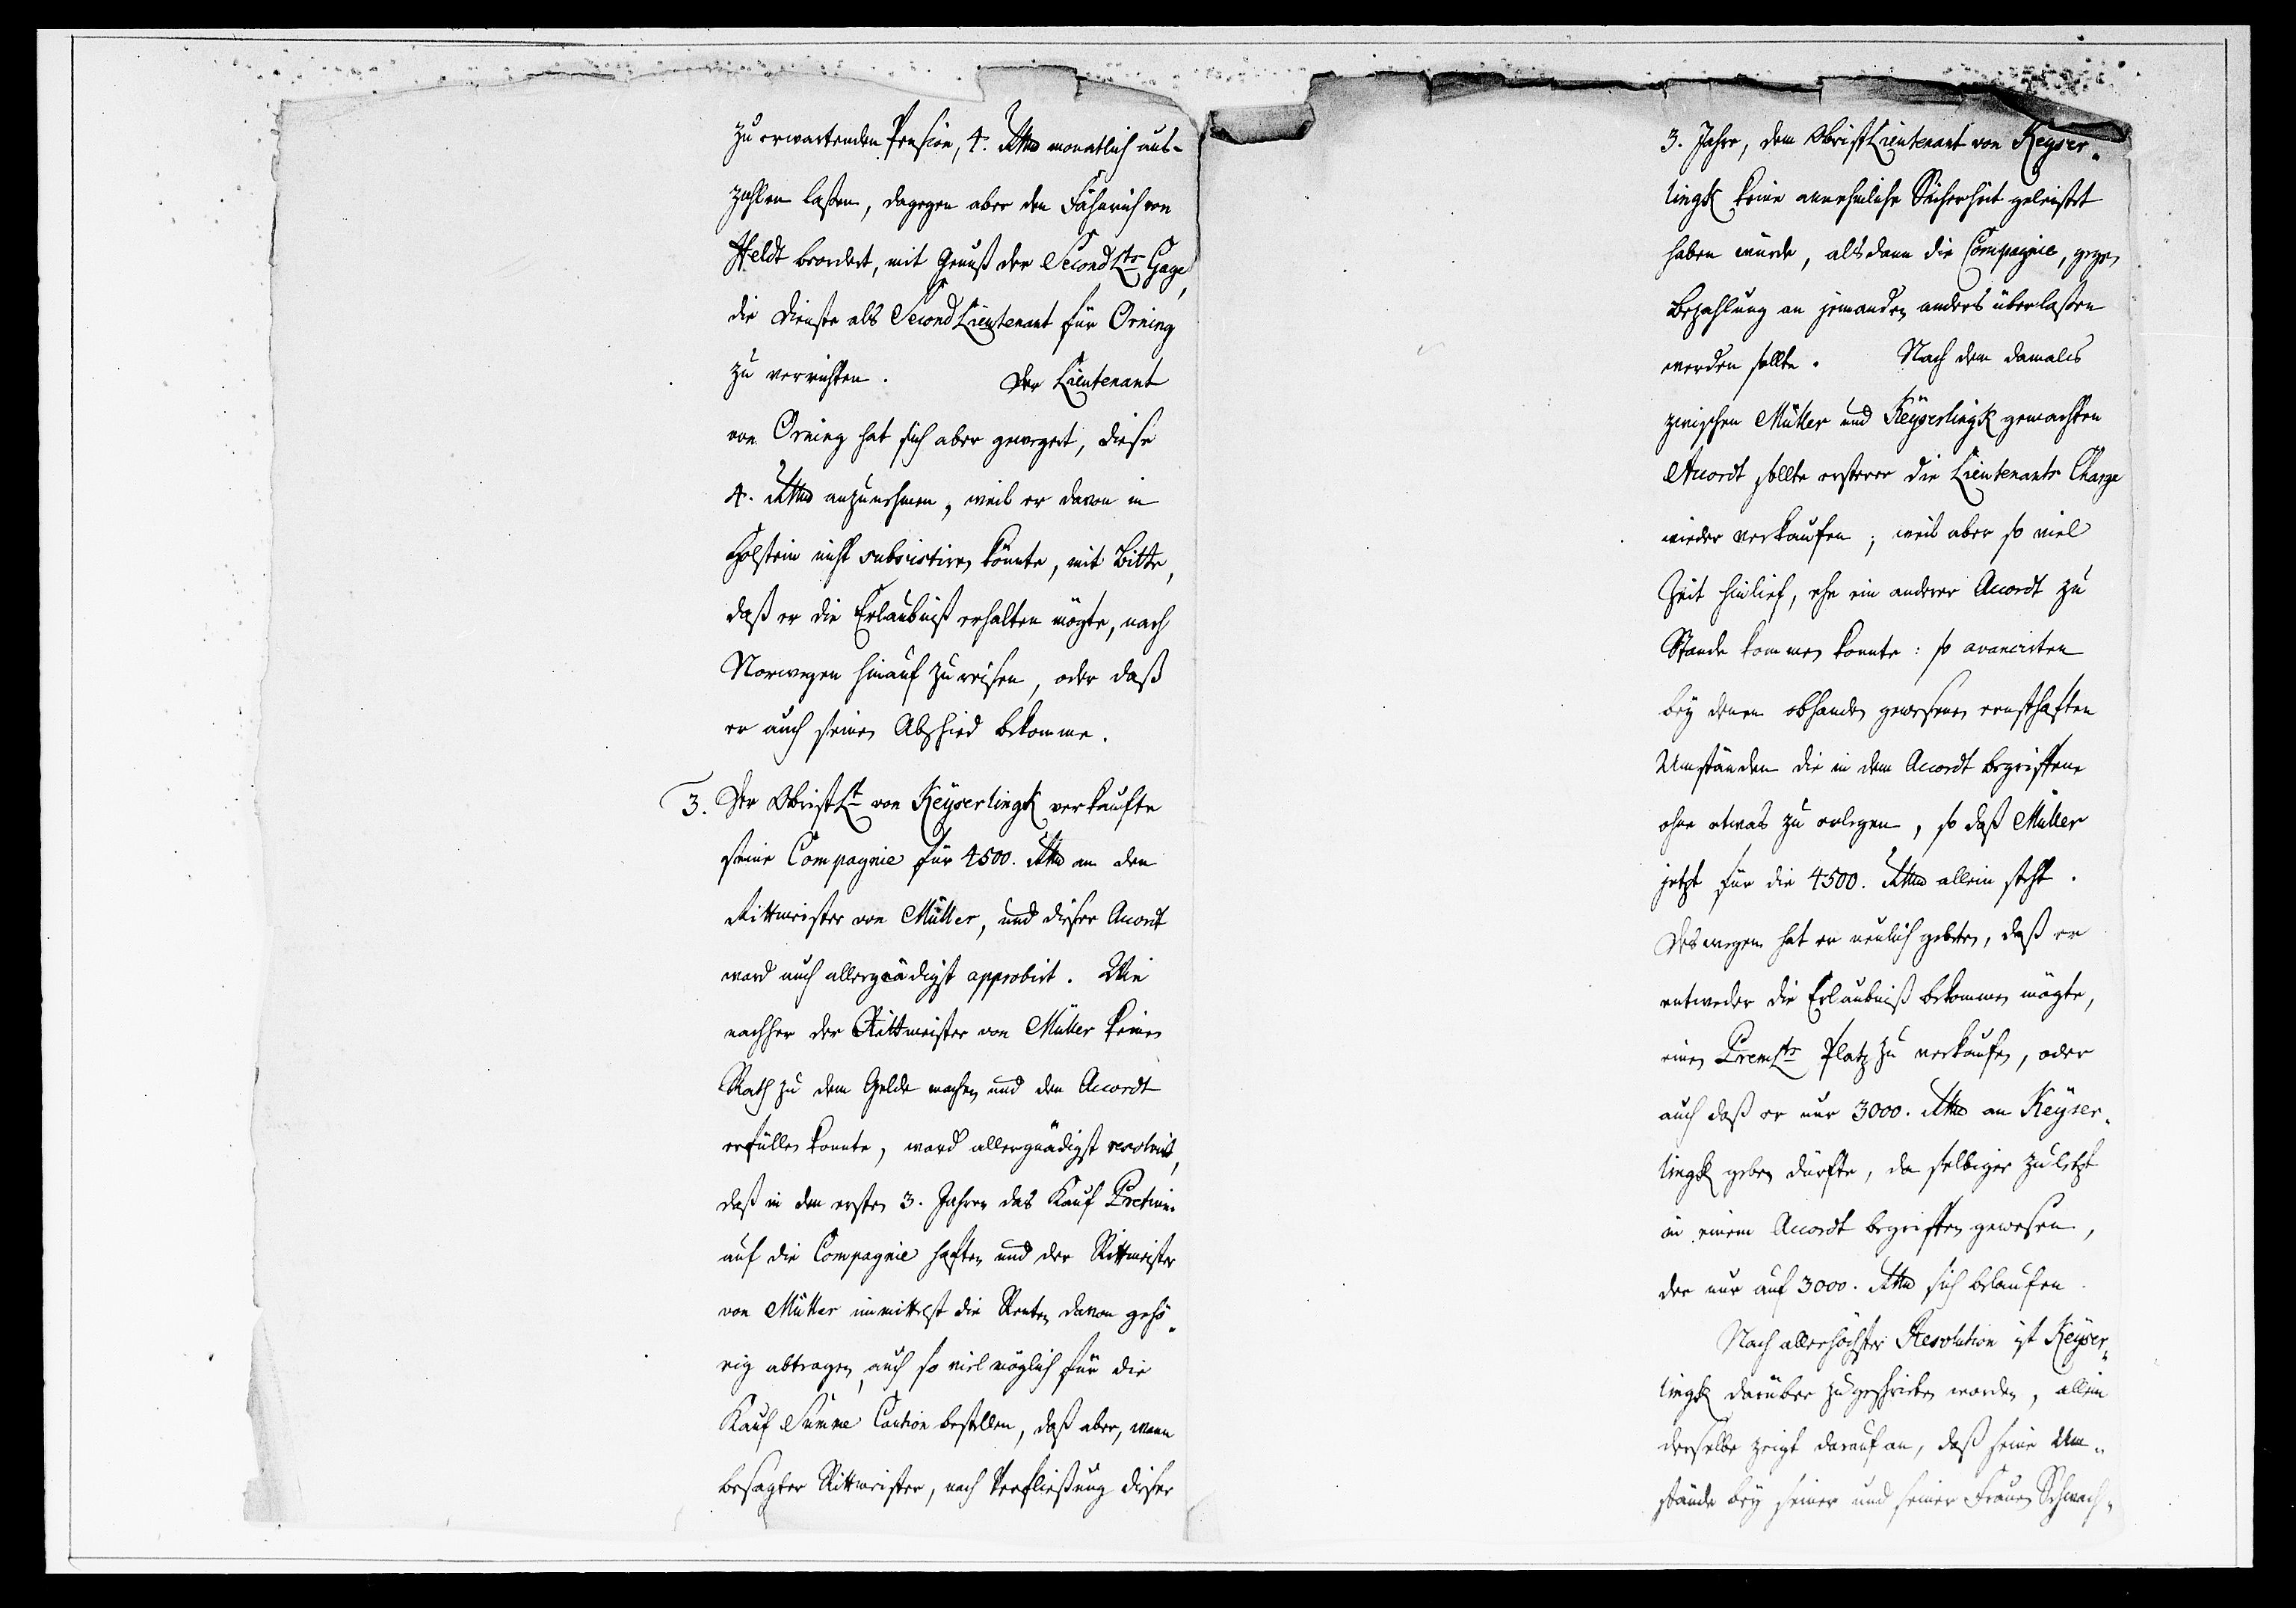 zu erwartenden Pension, 4. Rthlr monatlich aus-
zahlen laßen, dagegen aber den Fähnrich von
Heldt beordert, mit Genuß der Second Lts Gage,
die Dienste als Second Lieutenant für Orning
zu verrichten. Der Lieutenant
von Orning hat sich aber gewegert, diese
4. Rthlr anzunehmen, weil er davon in
Holstein nicht subsistiren könnte, mit Bitte,
daß er die Erlaubniß erhalten mögte, nach
Norwegen hinauf zu reisen, oder daß
er auch seinen Abschied bekomme.
3. Der Obrist Lt von Keyserlingk verkaufte
seine Compagnie für 4500. Rthlr an den
Rittmeister von Müller, und dieser Accordt
ward auch allergnädigst approbirt. Wie
nachher der Rittmeister von Müller keinen
Rath zu dem Gelde machen und den Accordt
erfüllen konnte, ward allergnädigst resolvirt,
daß in den ersten 3. Jahren das Kauf Pretium
auf die Compagnie haften und der Rittmeister
von Müller immittelst die Renten davon gehö-
rig abtragen, auch so viel möglich für die
Kauf Summe Caution bestellen, daß aber, wenn
besagter Rittmeister, nach Verfließung dieser
3. Jahre, dem Obrist Lieutenant von Keyser-
lingk keine annehmliche Sicherheit geleistet
haben würde, alsdann die Compagnie, gegen
Bezahlung an jemanden anders überlaßen
werden sollte. Nach dem damals
zwischen Müller und Keyserlingk gemachten
Accordt sollte ersterer die Lieutenants Charge
wieder verkaufen; weil aber so viel
Zeit hinlief, ehe ein anderer Accordt zu
Stande kommen konnte: so avancirten
bey denen obhanden gewesenen ernsthaften
Umständen die in dem Accordt begriffene
ohne etwas zu erlegen, so daß Müller
jetzt für die 4500. Rthlr allein steht.
Deswegen hat er neulich gebeten, daß er
entweder die Erlaubniß bekommen mögte,
einen Prem Lts Platz zu verkaufen, oder
auch daß er nur 3000. Rthlr an Keyser-
lingk geben dürfte, da selbiger zuletzt
in einem Accordt begriffen gewesen,
der nur auf 3000. Rthlr sich belaufen.
Nach allerhöchster Resolution ist Keyser-
lingk darüber zugeschrieben worden, allein
derselbe zeigt darauf an, daß seine Um-
stände bey seiner und seiner Frauen Schwach-